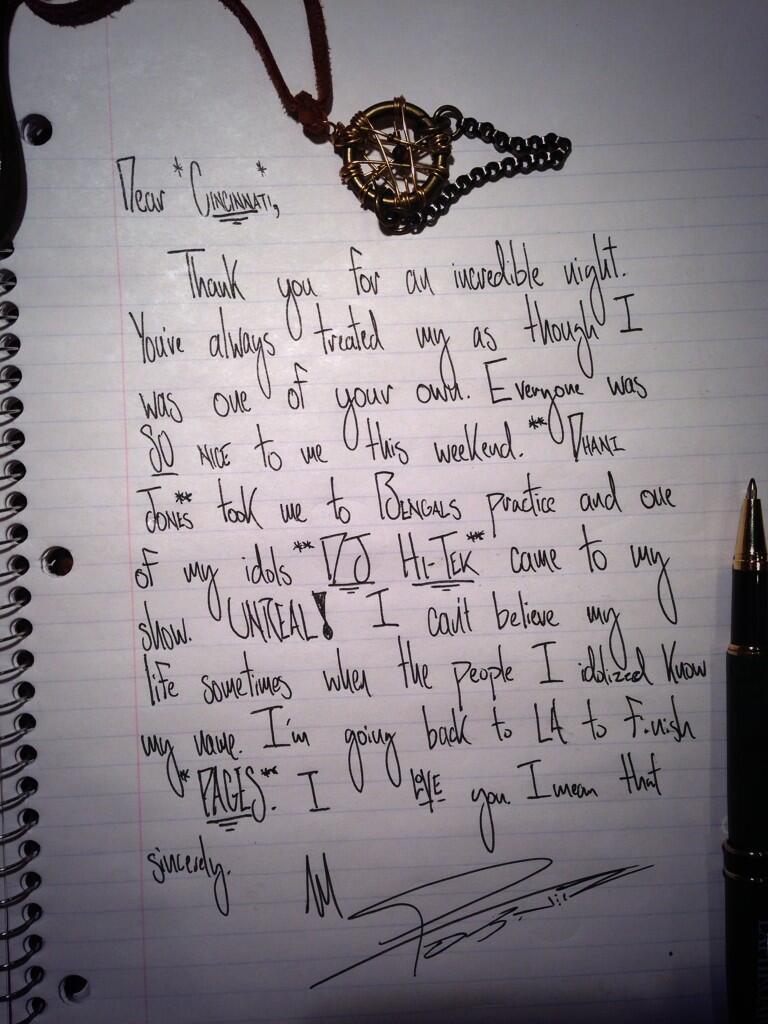 Dear *CINCINNATI*,
Thank you for an incredible night.
You've always treated my as though I
was one of your own. Everyone was
SO NICE to me this weekend. **DHANI
JONES** took me to BENGALS practice and one
of my idols **DJ HI-TEK** came to my
show. UNREAL! I can't believe my
life sometimes when the people I idolized know
my name. I'm going back to LA to finish
**PAGES**. I LOVE you. I mean that
sincerely.
M